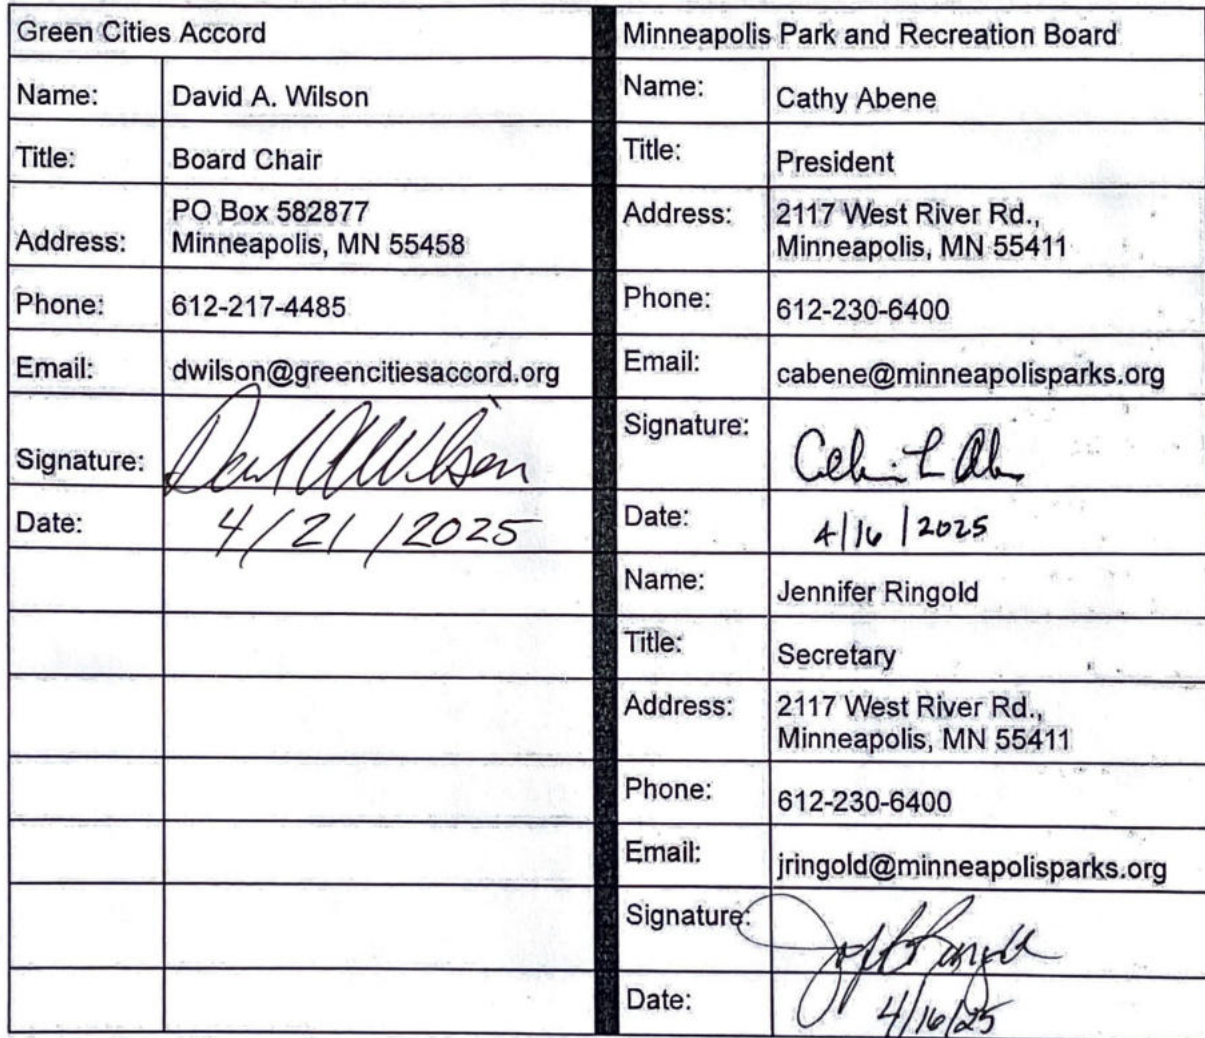 Green Cities Accord
Name: David A. Wilson
Title: Board Chair
Address: PO Box 582877
Minneapolis, MN 55458
Phone: 612-217-4485
Email: dwilson@greencitiesaccord.org
Signature: David A Wilson
Date: 4/21/2025
Minneapolis Park and Recreation Board
Name: Cathy Abene
Title: President
Address: 2117 West River Rd.,
Minneapolis, MN 55411
Phone: 612-230-6400
Email: cabene@minneapolisparks.org
Signature:
Date: 4/16/2025
Name: Jennifer Ringold
Title: Secretary
Address: 2117 West River Rd.,
Minneapolis, MN 55411
Phone: 612-230-6400
Email: jringold@minneapolisparks.org
Signature:
Date: 4/16/25